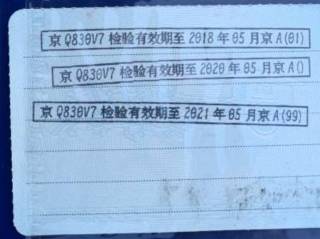 京Q830V7 检验有效期至 2018年05月京A(01)
京Q830V7 检验有效期至 2020年05月京A()
京Q830V7 检验有效期至 2021年05月京A(99)